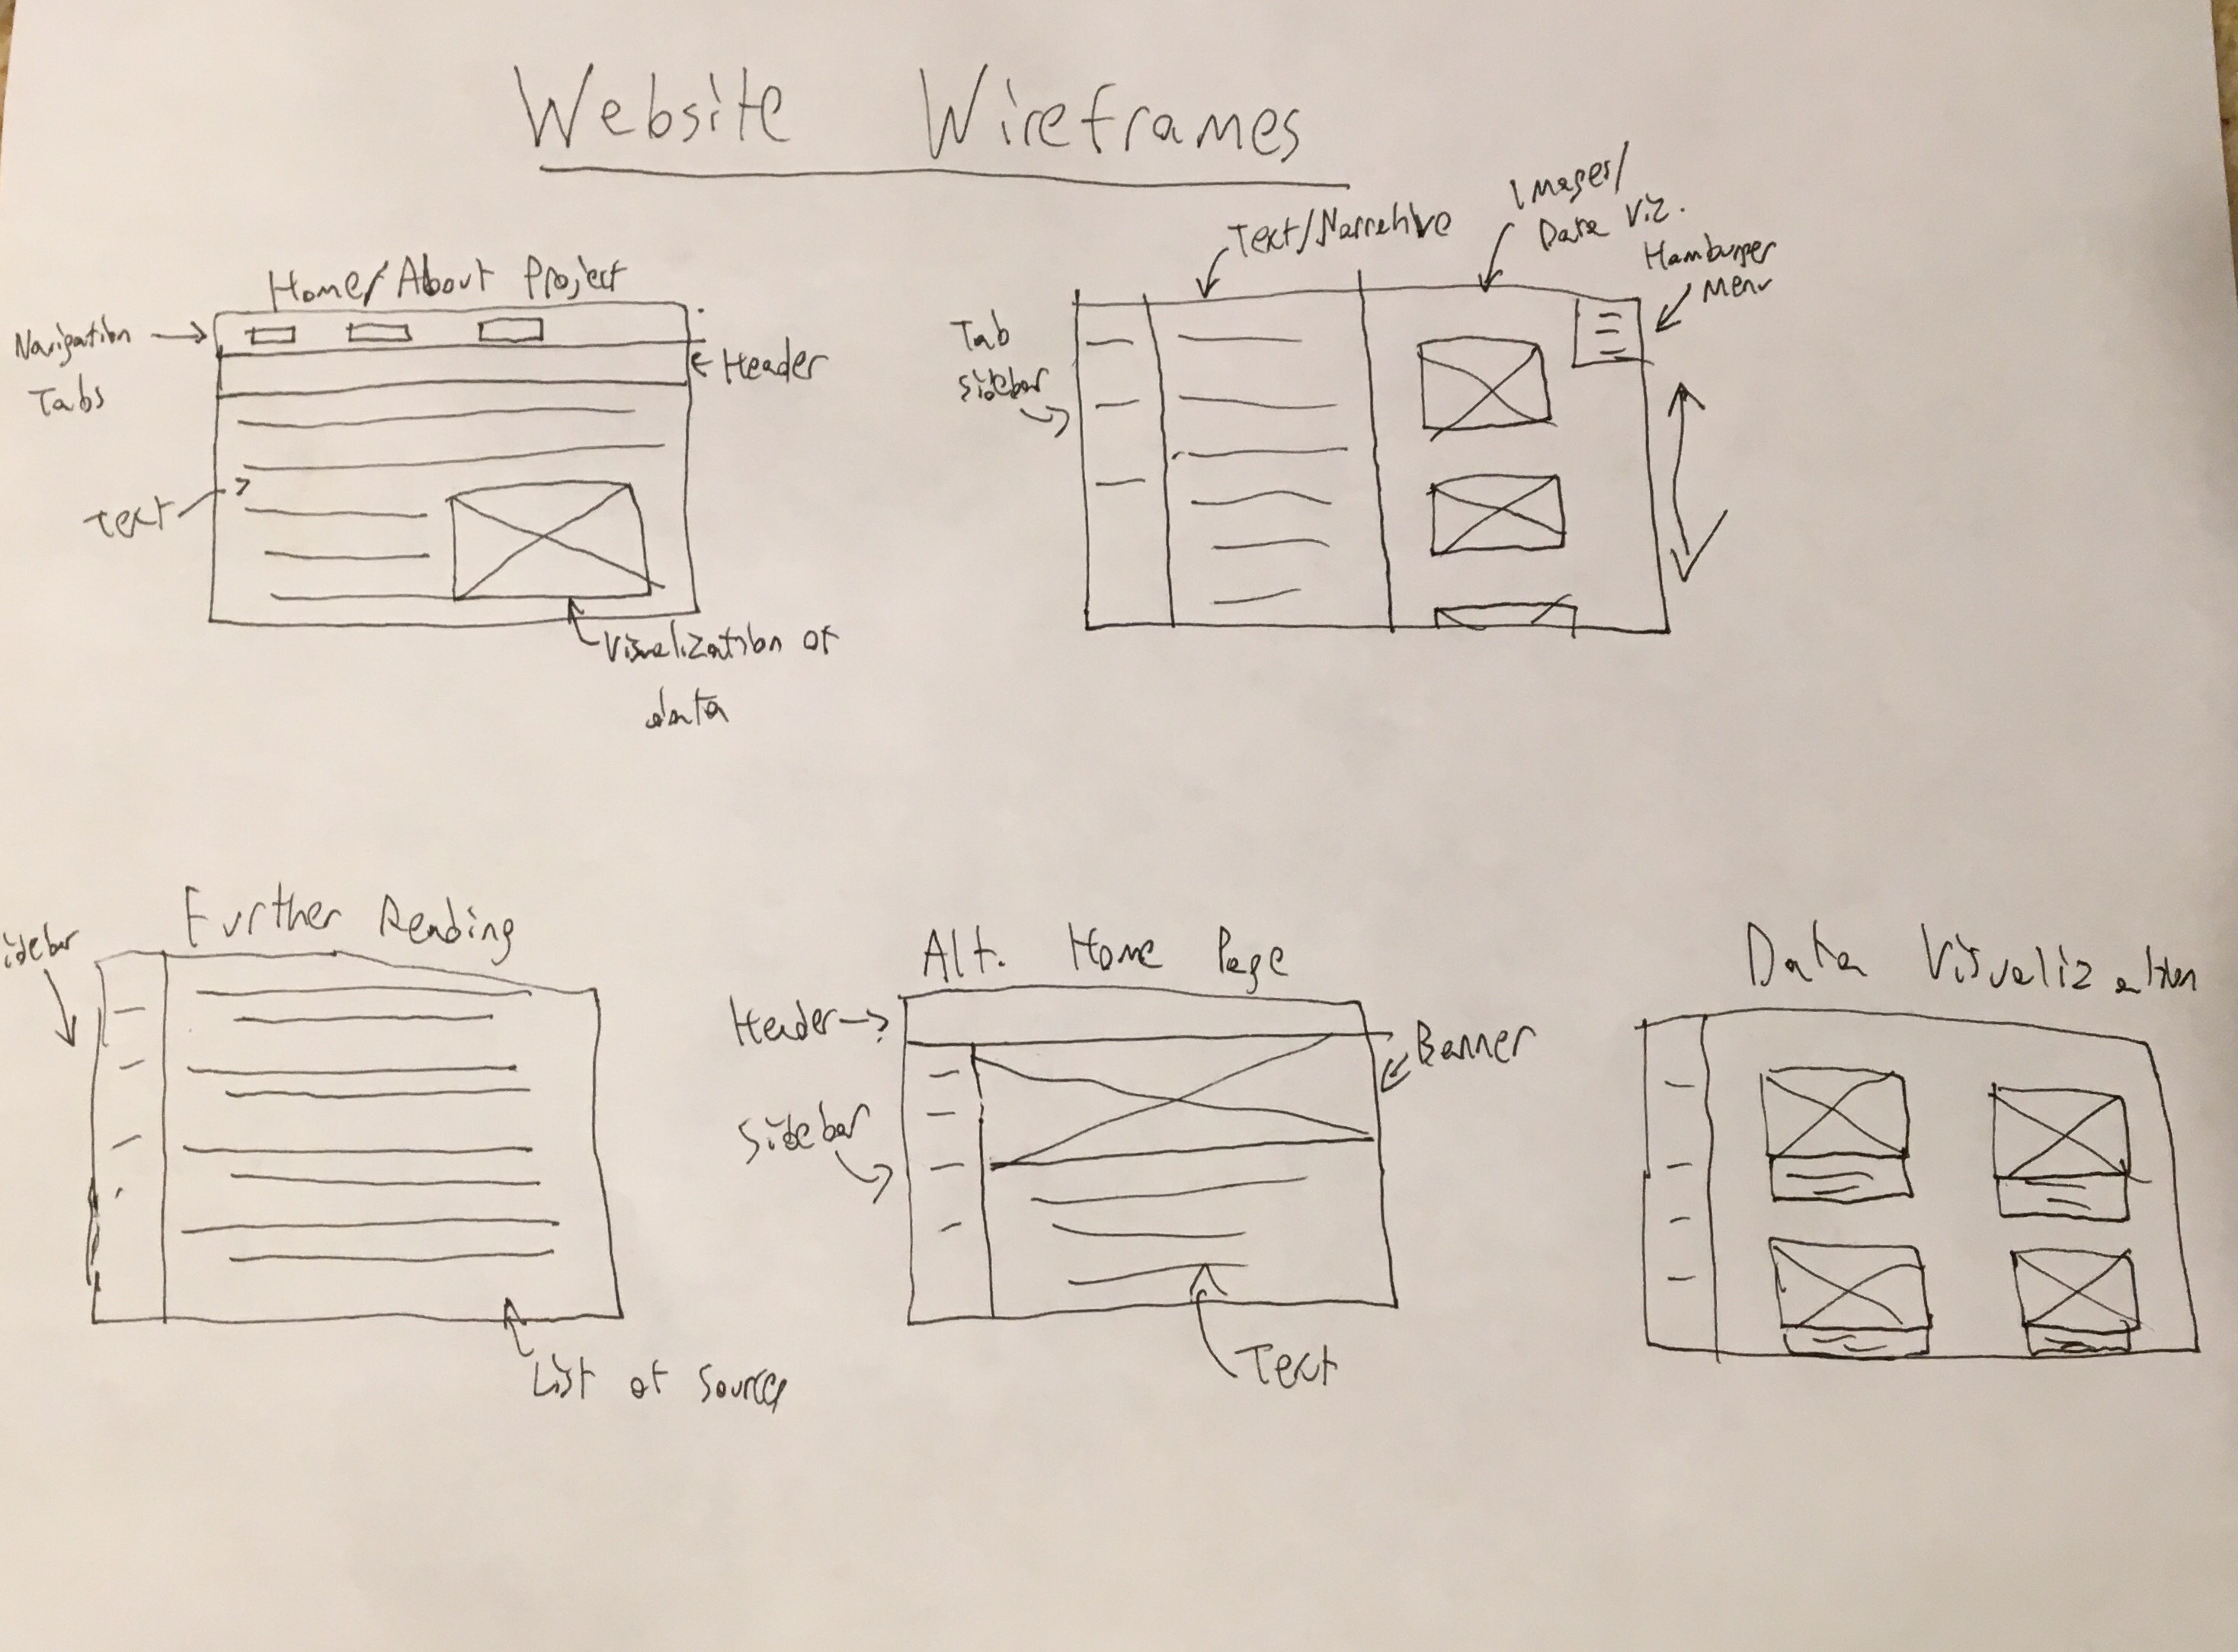 Website Wireframes
Home/About Project
Navigation
Tabs
Header
Text
Visualization of
data
Text/Narrative
Images/
Data Viz.
Hamburger
Menu
Tab
sidebar
Further Reading
idebar
List of sources
Alt. Home Page
Header
Banner
Sidebar
Text
Data Visualization